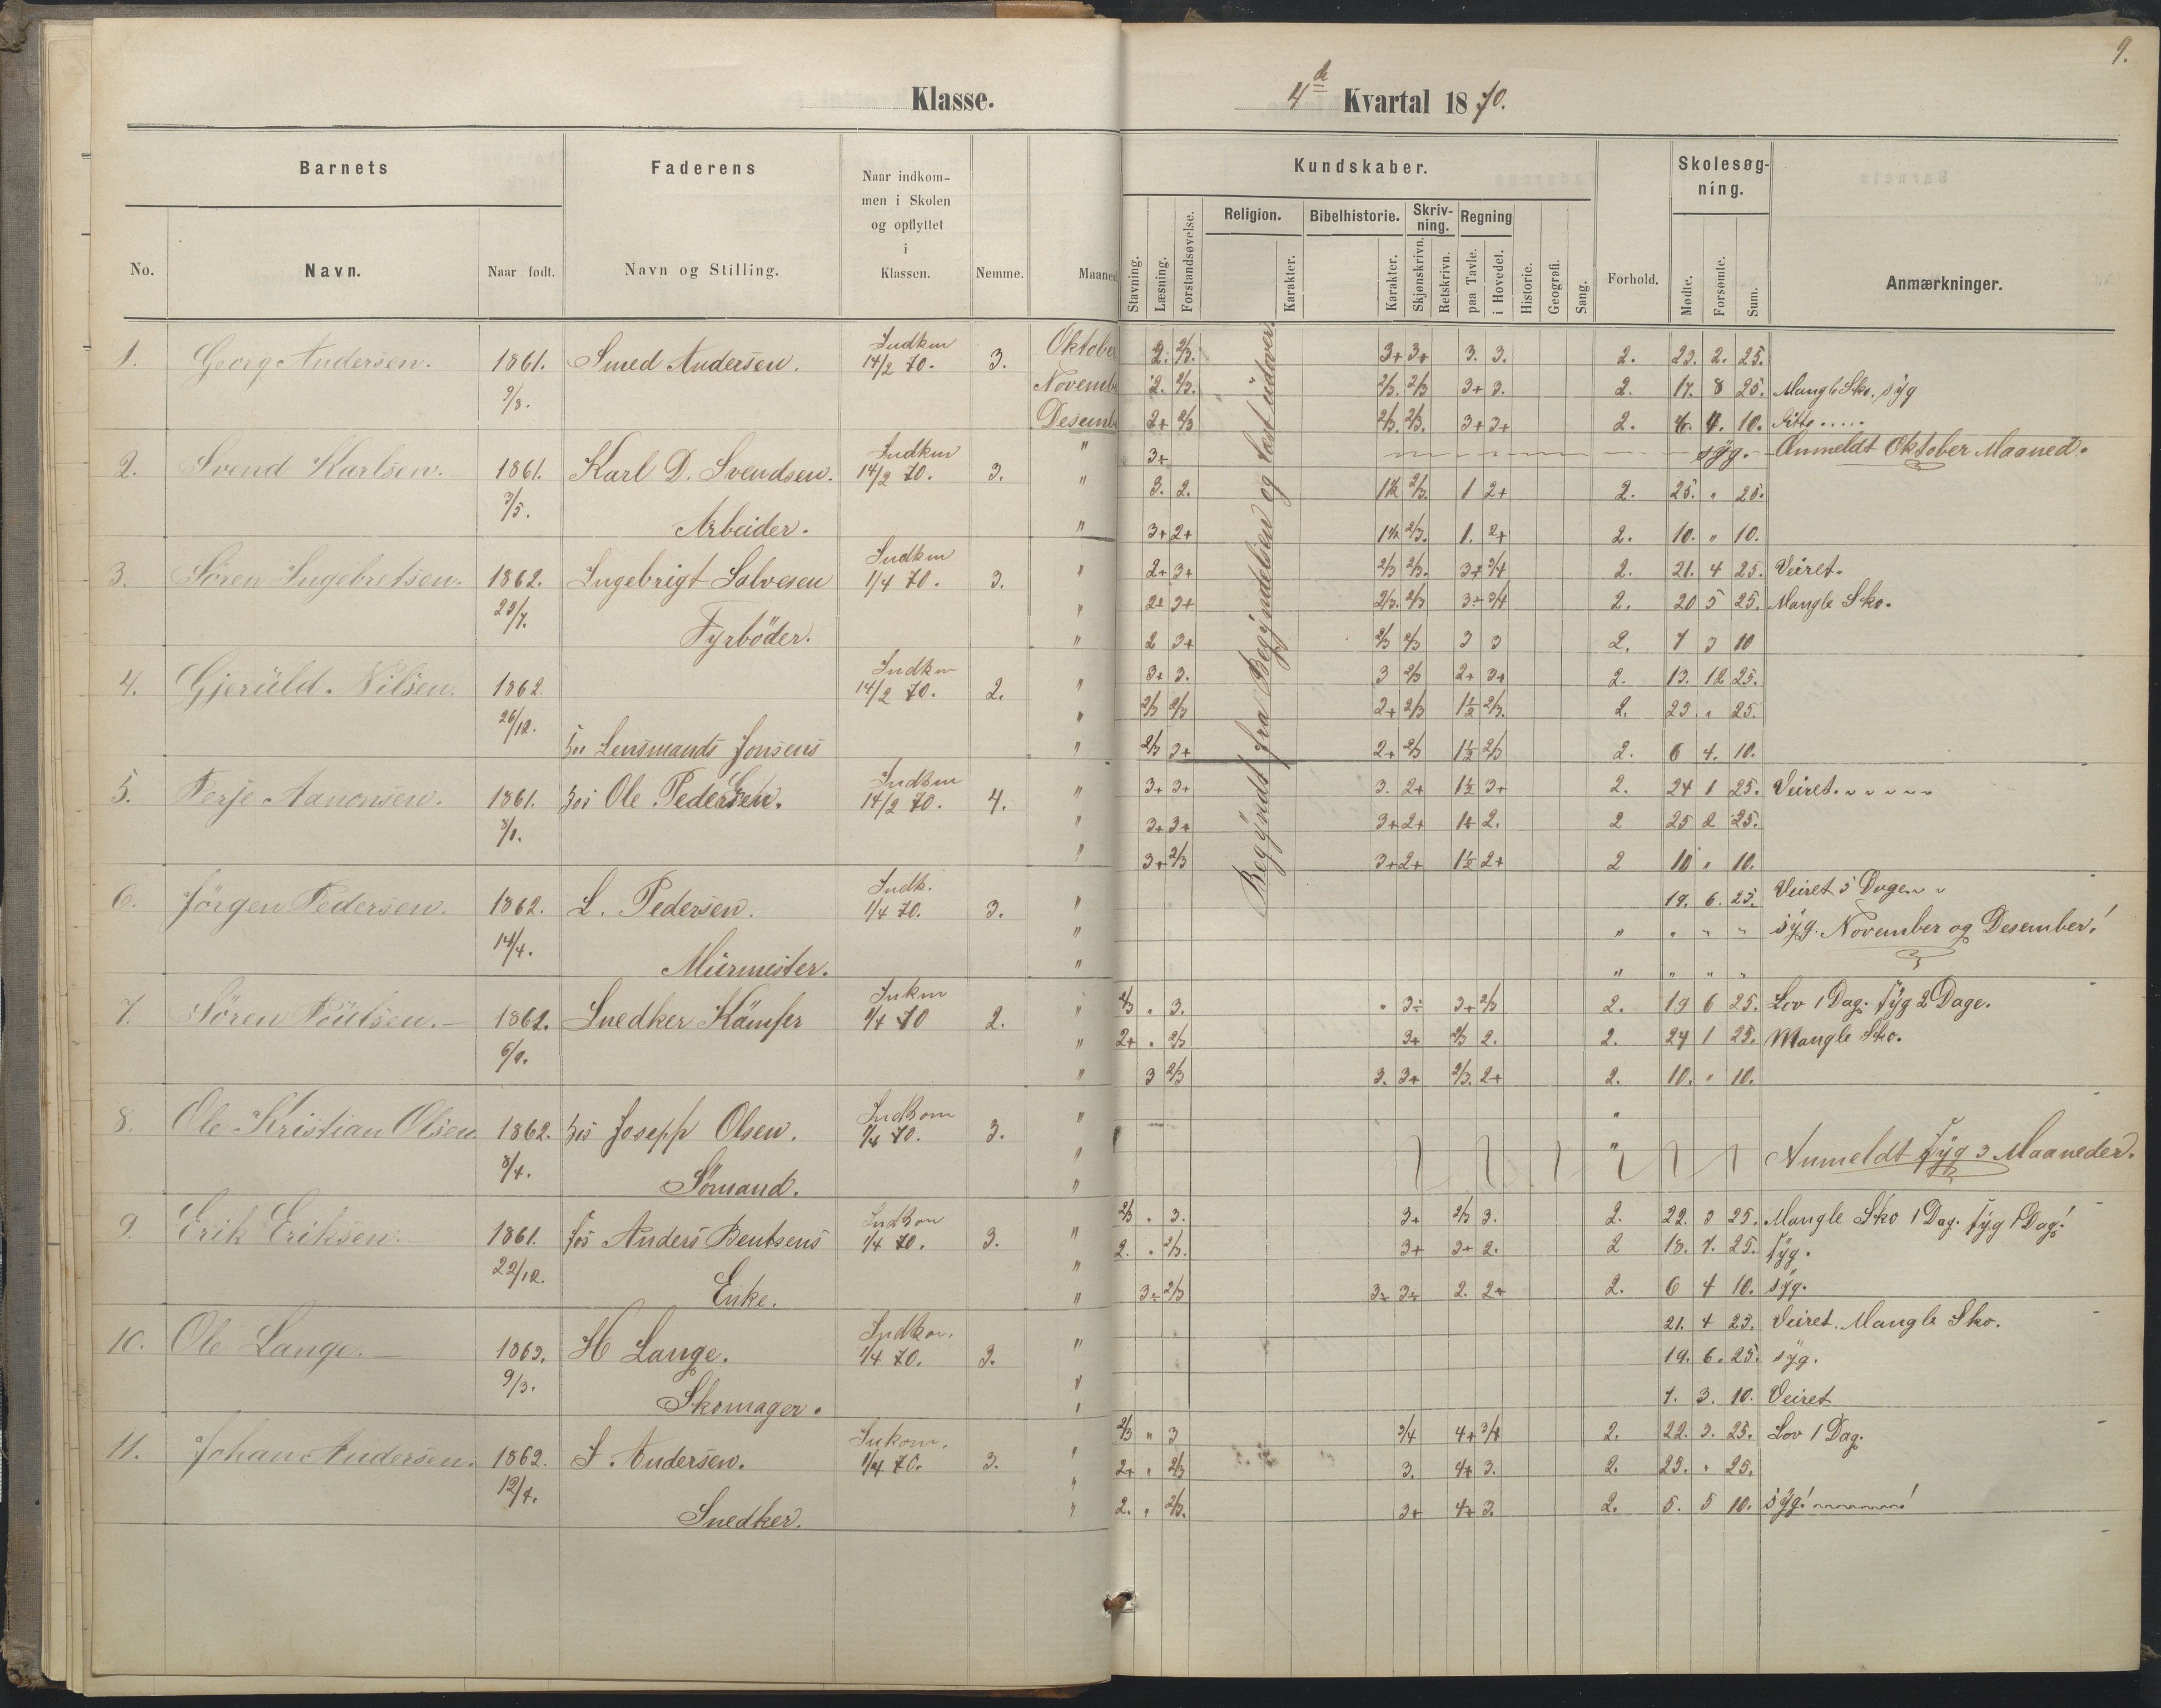 9.
Klasse.
4de Kvartal 1870.
Barnets
Faderens
Naar indkom-
men i Skolen
og opflyttet
i
Klassen.
Kundskaber.
Skolesøg-
ning.
No.
Navn.
Naar født.
Navn og Stilling.
Nemme.
Maaned
Stavning.
Læsning.
Forstandsøvelse.
Religion.
Karakter.
Bibelhistorie.
Karakter.
Skriv-
ning.
Skjønskrivn.
Retskrivn.
Regning
paa Tavle.
i Hovedet.
Historie.
Geografi.
Sang.
Forhold.
Mødte.
Forsømte.
Sum.
Anmærkninger.
Begyndt fra Begyndelsen og læst udover
1. Georg Andersen. 1861. Smed Andersen. Indkm 14/2 70. 3. Oktober 2. 2/3. 3+ 3+ 3. 3. 2. 23. 2. 25.
9/8. Novemb 2. 2/3. 2/3. 2/3 3+ 3. 2. 17. 8 25. Mangle Sko. syg
Desemb 2+ 2/3 2/3. 2/3. 3+ 3+ 2. 6. 4. 10. Ditto.....
2. Svend Karlsen. 1861. Karl D. Svendsen. Indkm 14/2 70. 3. " 3+ syg. Anmeldt Oktober Maaned.
3/5. " 3. 2. 1½ 2/3. 1 2+ 2. 25. " 25.
Arbeider. " 3+ 2+ 1½ 2/3. 1. 2+ 2. 10. " 10.
3. Søren Ingebretsen. 1862. Ingebrigt Salvesen Indkm 1/4 70. 3. " 2+ 3+ 2/3 2/3. 3+ 3/4 2. 21. 4 25. Veiret.
25/7. " 2+ 3+ 2/3. 2/3 3÷ 3/4 2. 20 5 25. Mangle Sko.
Fyrböder. " 2 3+ 2/3 2/3 3 3 2. 7 3 10
4. Gjeruld Nilsen. 1862 Indkm 14/2 70. 2. " 3+ 3. 3 2/3 2+ 3+ 2. 13. 12 25.
26/12. " 2/3 2/3 2+ 2/3 1½ 2/3. 2. 23 " 25.
hos Lensmands Jonsens " 2/3 3+ 2+ 2/3 1½ 2/3 2. 6 4. 10.
5. Terje Aanonsen. 1861. hos Ole Pedersen. Indkm 14/2 70. 4. " 3+ 3+ 3. 2+ 1½ 3+ 2. 24 1 25. Veiret.
8/1. " 3+ 3+ 3+ 2+ 1+ 2. 2 25 2 25.
" 3+ 2/3 3+ 2+ 1½ 2+ 2 10 " 10.
6. Jörgen Pedersen. 1862. L. Pedersen. Indk. 1/4 70. 3. " 19. 6. 25. Veiret 5 Dage.
14/4. " " " " " syg. November og Desember!
Murmester. " " " " "
7. Søren Poulsen. 1862. Snedker Kämfer Inkm 1/4 70 2. " 2/3 " 3. " 3÷ 3+ 2/3 2. 19 6 25. Lov 1 Dag. syg 2 Dage.
" 2+ " 2/3 3+ 2/3 2. 2. 24 1 25. Mangle Sko.
" 3 2/3 3. 3+ 2/3. 2+ 2. 10. " 10.
8. Ole Kristian Olsen 1862. hos Josepp Olsen. Indkom 1/4 70. 3. " "
8/4. " " Anmeldt syg 3 Maaneder.
Sömand. "
9. Erik Eriksen. 1861. hos Anders Bentsens Indkom 1/4 70. 3. " 2/3 " 3. 3+ 2/3 3. 2. 22. 3 25. Mangle Sko 1 Dag. syg 1 Dag!
22/12. " 2. " 2/3. 3+ 3+ 2. 2 18. 7. 25. syg.
Enke. " 3÷ 2/3 3÷ 3÷ 2. 2+ 2. 6 4 10. syg.
10. Ole Lange. 1863. H Lange. Indkom. 1/4 70. 3. " 21. 4 25. Veiret. Mangle Sko.
9/3. " 19. 6. 25. syg.
Skomager. " 7. 3. 10. Veiret
11. Johan Andersen. 1862. S. Andersen. Inkom. 1/4 70. 3. " 2/3 " 3 3/4 4+ 3/4 2. 22. 3. 25. Lov 1 Dag.
12/4. " 2+ " 2/3 3. 4+ 3. 2. 25. " 25.
Snedker. " 2. " 2/3. 3+ 4+ 3. 2. 5. 5 10. syg!